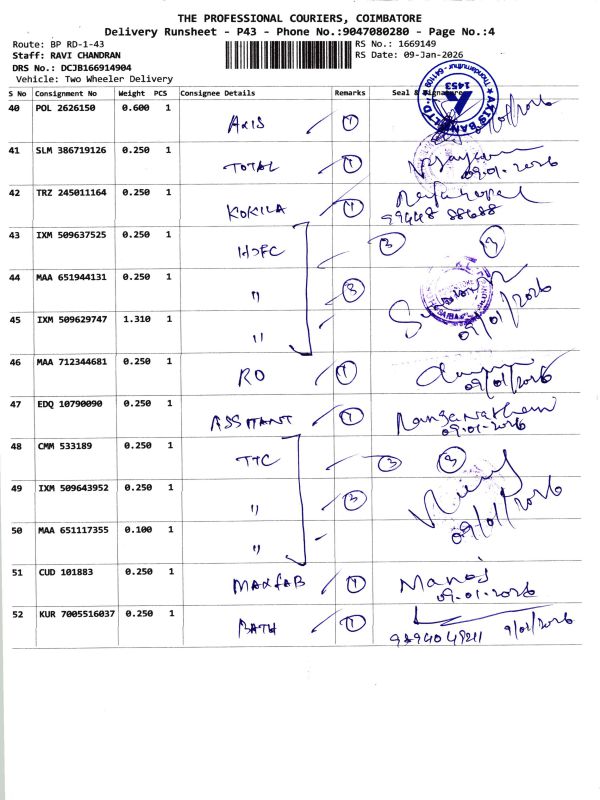 THE PROFESSIONAL COURIERS, COIMBATORE
Delivery Runsheet - P43 - Phone No.:9047080280 - Page No.:4
Route: BP RD-1-43
RS No.: 1669149
Staff: RAVI CHANDRAN
RS Date: 09-Jan-2026
DRS No.: DCJB166914904
Vehicle: Two Wheeler Delivery
S No Consignment No Weight PCS Consignee Details Remarks Seal & Signature
40 POL 2626150 0.600 1 AXIS 1
AXIS BANK LTD. 1453
41 SLM 386719126 0.250 1 TOTAL 1
09.01.2026
42 TRZ 245011164 0.250 1 KOKILA 1 Rajagopal
99448 88688
43 IXM 509637525 0.250 1 HDFC 3 3
44 MAA 651944131 0.250 1 " 3
45 IXM 509629747 1.310 1 "
09/01/2026
46 MAA 712344681 0.250 1 RO 1
09/01/2026
47 EDQ 10790090 0.250 1 ASSITANT 1 Ranganathan
09.01.2026
48 CMM 533189 0.250 1 TTC 3 3
49 IXM 509643952 0.250 1 " 3
50 MAA 651117355 0.100 1 "
09/01/2026
51 CUD 101883 0.250 1 MAXFAB 1 Manoj
09.01.2026
52 KUR 7005516037 0.250 1 BATH 1
9/01/2026